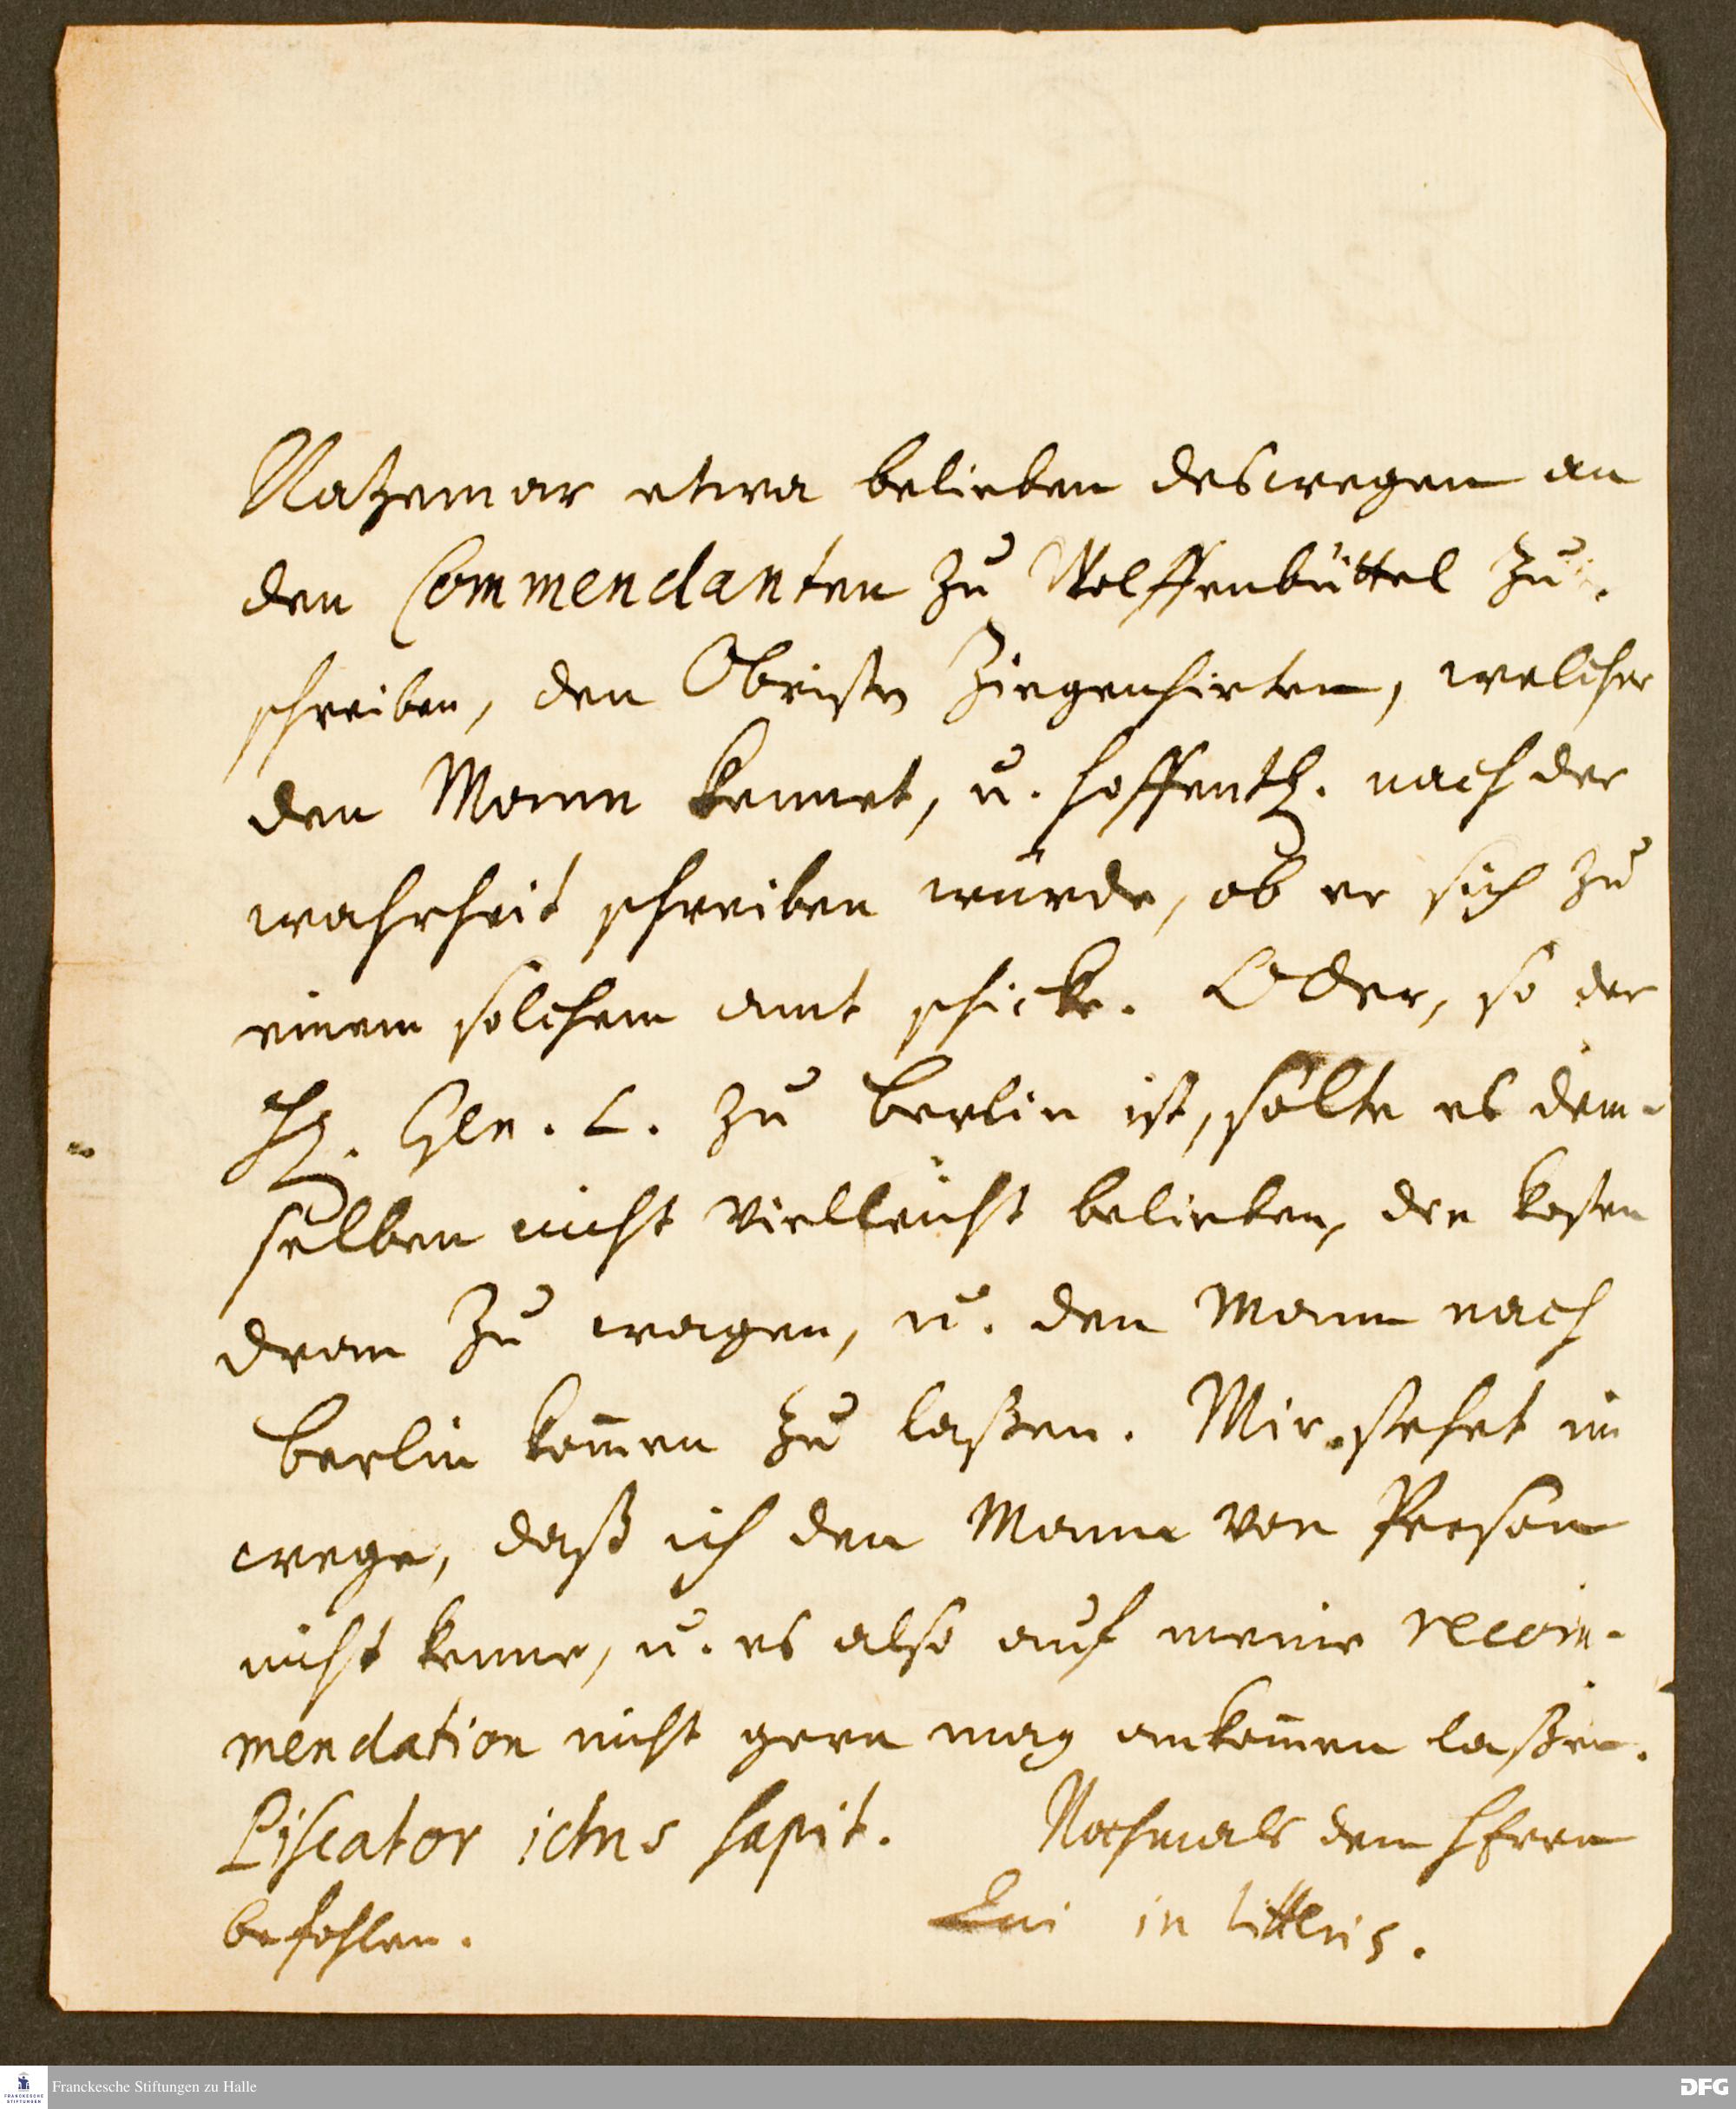 Natzemar etwa belieben deswegen an
den Commendanten zu Wolffenbüttel zu
schreiben, den Obristen Ziegenhirten, welcher
den Mann kennet, u. hoffentl. nach der
wahrheit schreiben würde, ob er sich zu
einem solchem amt schicke. Oder, so der
H. Gen. L. zu Berlin ist, solte es dem-
selben nicht vielleicht belieben, die kosten
dran zu wagen, u. den Mann nach
Berlin kom̄en zu laßen. Mir stehet im
wege, daß ich den Mann von Person
nicht kenne, u. es also auf meine recom-
mendation nicht gern mag ankom̄en laßen.
Piscator ictus sapit. Nochmals dem HErrn
befohlen. in litteris.
FRANCKESCHE STIFTUNGEN
Franckesche Stiftungen zu Halle
DFG